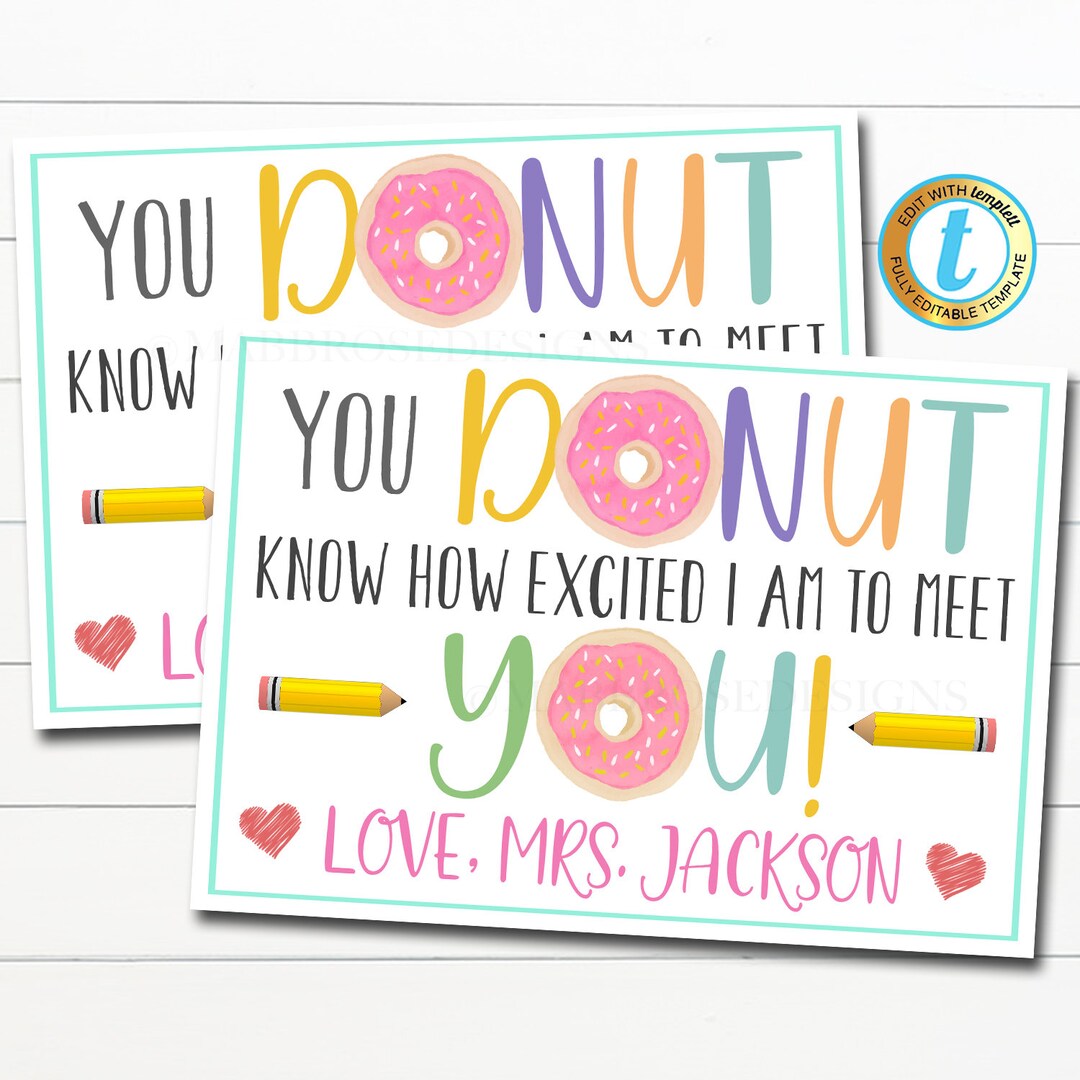 YOU DONUT
KNOW I AM TO MEET
EDIT WITH templett
t
FULLY EDITABLE TEMPLATE
YOU DONUT
KNOW HOW EXCITED I AM TO MEET
YOU!
LOVE, MRS. JACKSON
©MABBROSEDESIGNS
©MABBROSEDESIGNS